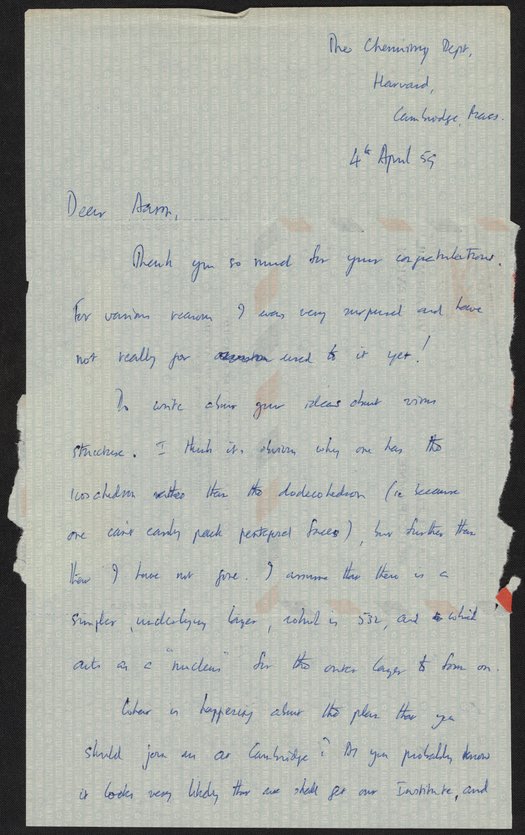 The Chemistry Dept,
Harvard,
Cambridge, Mass.
4th April 59
Dear Aaron,
Thank you so much for your congratulations.
For various reasons I was very surprised and have
not really got used to it yet!
Do write about your ideas about virus
structure. I think it's obvious why one has the
icosahedron rather than the dodecahedron (ie because
one can't easily pack pentagonal faces), but further than
that I have not gone. I assume that there is a
simpler, underlying layer, which is 532, and which
acts as a "nucleus" for the outer layer to form on.
What is happening about the plan that you
should join us at Cambridge? As you probably know
it looks very likely that we shall get our Institute, and